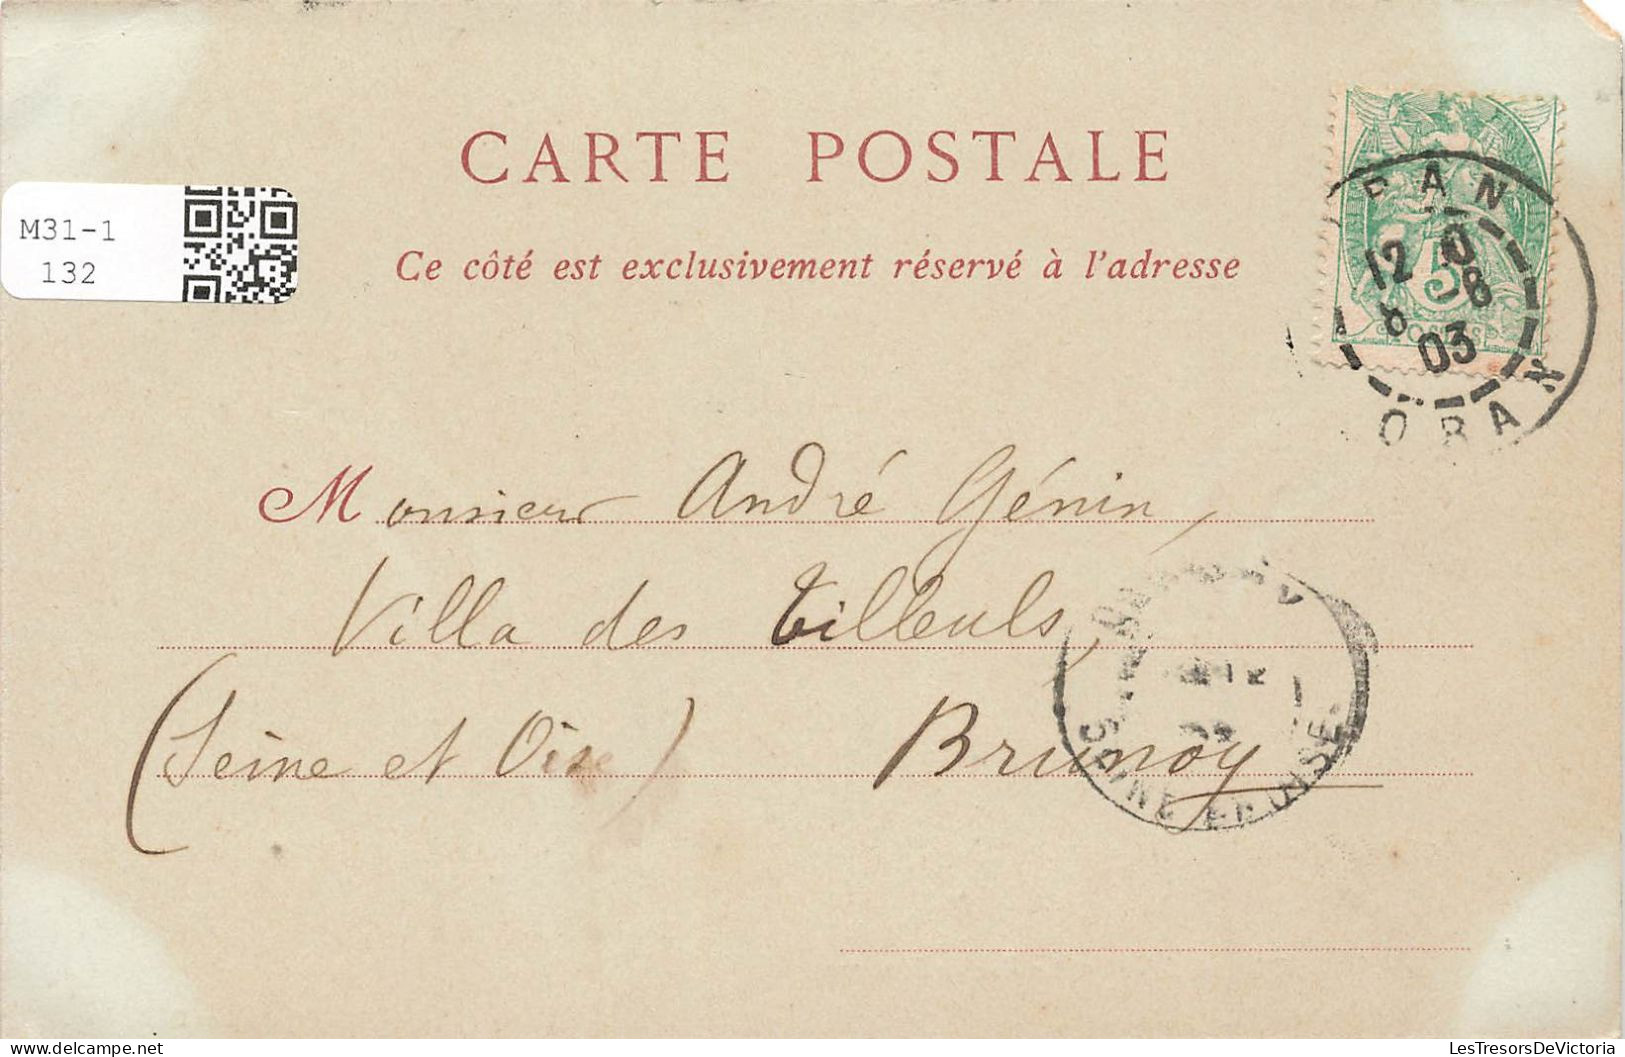 CARTE POSTALE
Ce côté est exclusivement réservé à l'adresse
M31-1
132
5
ORAN
12
8-8
03
ORAN
Monsieur André Génin,
Villa des Tilleuls,
(Seine et Oise) Brunoy
SEINE-ET-OISE
LesTresorsDeVictoria